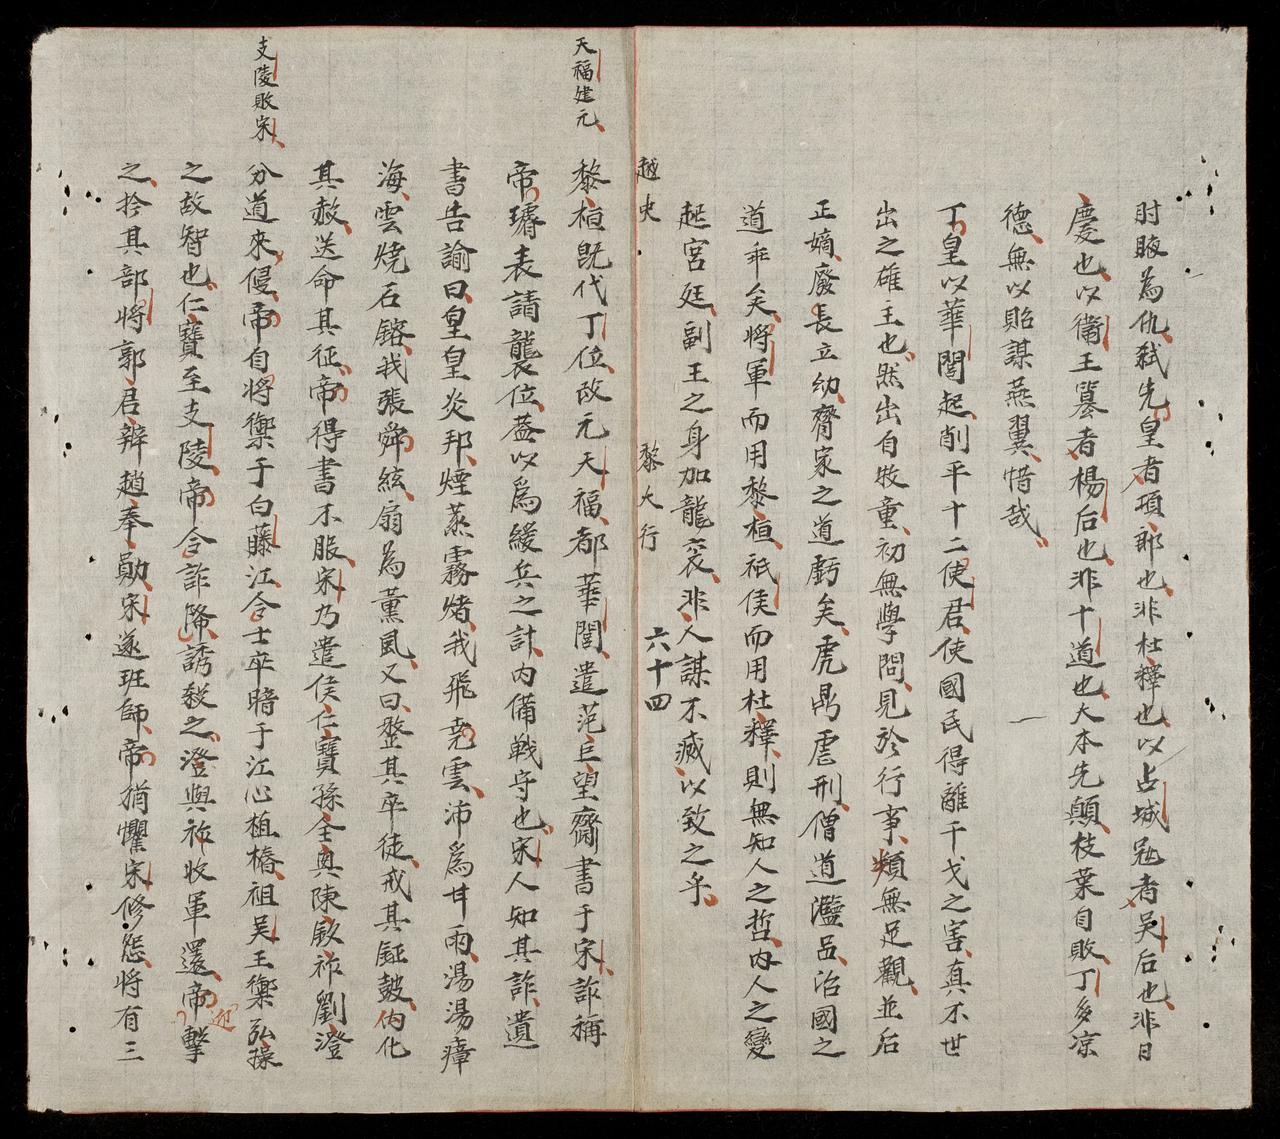 肘腋為仇弒先皇者項郎也非杜釋也以占城冦者吴后也非日
慶也以衛王簒者楊后也非十道也大本先顛枝葉自敗丁多凉
德無以貽謀燕翼惜哉
丁皇以華閭起削平十二使君使國民得離干戈之害真不世
出之雄主也然出自牧童初無學問見於行事頻無足觀並后
正嫡廢長立幼齊家之道虧矣虎鼎虐刑僧道濫品治國之
道乖矣將軍而用黎桓祇侯而用杜釋則無知人之哲内人之變
起宮廷副王之身加龍衮非人謀不臧以致之乎
越史 黎大行 六十四
天福建元
黎桓既代丁位改元天福都華閭遣范巨望齋書于宋詐稱
帝璿表請襲位蓋以爲緩兵之計内備戰守也宋人知其詐遺
書告諭曰皇皇炎邦煙蒸霧煮我飛尭雲沛爲甘雨湯湯瘴
海雲燒石鎔我張舜絃扇為薰風又曰整其卒徒戒其鉦皷向化
其赦送命其征帝得書不服宋乃遣侯仁寶孫全興陳欽祚劉澄
支陵敗宋
分道來侵帝自將禦于白藤江令士卒暗于江心植樁祖吴王禦弘操
之故智也仁寶至支陵帝令詐降誘殺之澄與祚收軍還帝迎擊
之擒其部將郭君辨趙奉勛宋遂班師帝猶懼宋修怨將有三